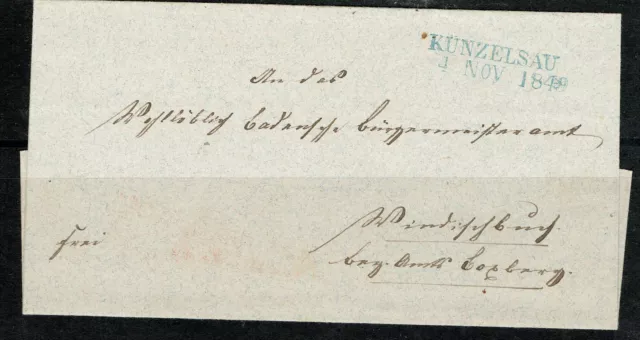 KÜNZELSAU
1 NOV 1849
An das
Wohllöblich badensche Bürgermeisteramt
Windischbuch.
frei
bez. Amts Boxberg.